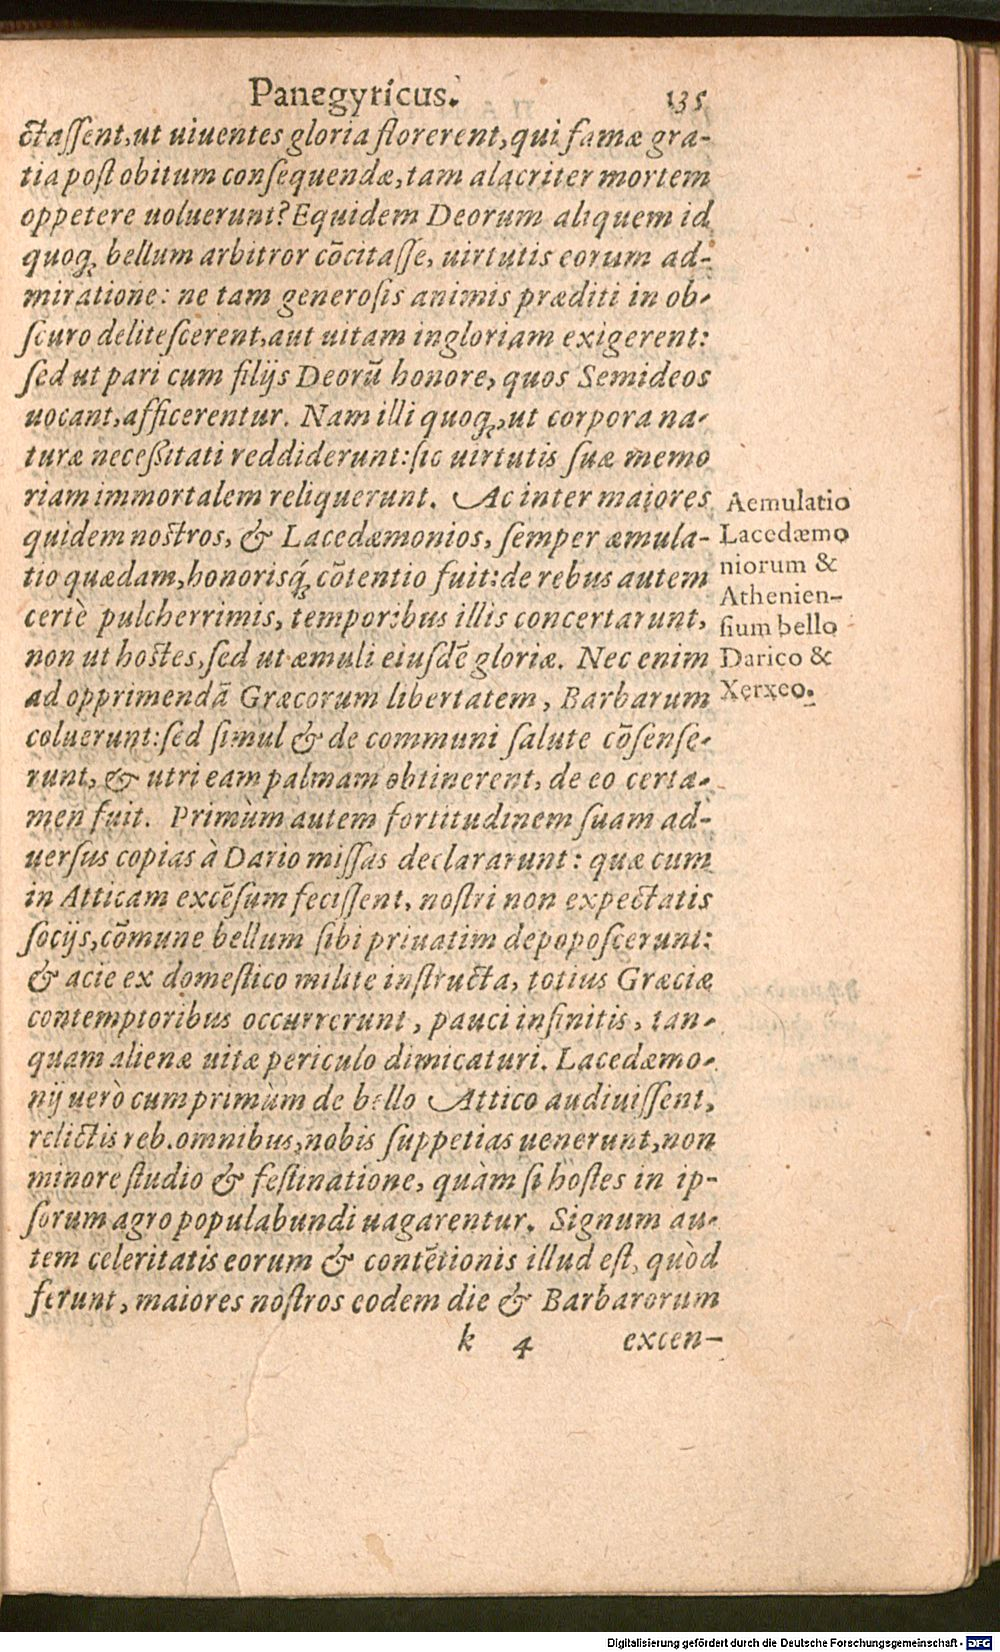 Panegyricus. 135
ctassent, ut uiuentes gloria florerent, qui famæ gra-
tia post obitum consequendæ, tam alacriter mortem
oppetere uoluerunt? Equidem Deorum aliquem id
quoq; bellum arbitror cōcitasse, uirtutis eorum ad-
miratione: ne tam generosis animis præditi in ob-
scuro delitescerent, aut uitam ingloriam exigerent:
sed ut pari cum filijs Deorū honore, quos Semideos
uocant, afficerentur. Nam illi quoq;, ut corpora na-
turæ neceßitati reddiderunt: sic uirtutis suæ memo
riam immortalem reliquerunt. Ac inter maiores
quidem nostros, & Lacedæmonios, semper æmula-
tio quædam, honorisq́; cōtentio fuit: de rebus autem
certè pulcherrimis, temporibus illis concertarunt,
non ut hostes, sed ut æmuli eiusdē gloriæ. Nec enim
ad opprimendā Græcorum libertatem, Barbarum
coluerunt: sed simul & de communi salute cōsense-
runt, & utri eam palmam obtinerent, de eo certa-
men fuit. Primùm autem fortitudinem suam ad-
uersus copias à Dario missas declararunt: quæ cum
in Atticam excēsum fecissent, nostri non expectatis
socijs, cōmune bellum sibi priuatim depoposcerunt:
& acie ex domestico milite instructa, totius Græciæ
contemptoribus occurrerunt, pauci infinitis, tan-
quam alienæ uitæ periculo dimicaturi. Lacedæmo-
nij uerò cum primùm de bello Attico audiuissent,
relictis reb. omnibus, nobis suppetias uenerunt, non
minore studio & festinatione, quàm si hostes in ip-
sorum agro populabundi uagarentur. Signum au-
tem celeritatis eorum & contētionis illud est, quòd
ferunt, maiores nostros eodem die & Barbarorum
k 4 excen-
Aemulatio
Lacedæmo
niorum &
Athenien-
sium bello
Darico &
Xerxeo.
Digitalisierung gefördert durch die Deutsche Forschungsgemeinschaft - DFG